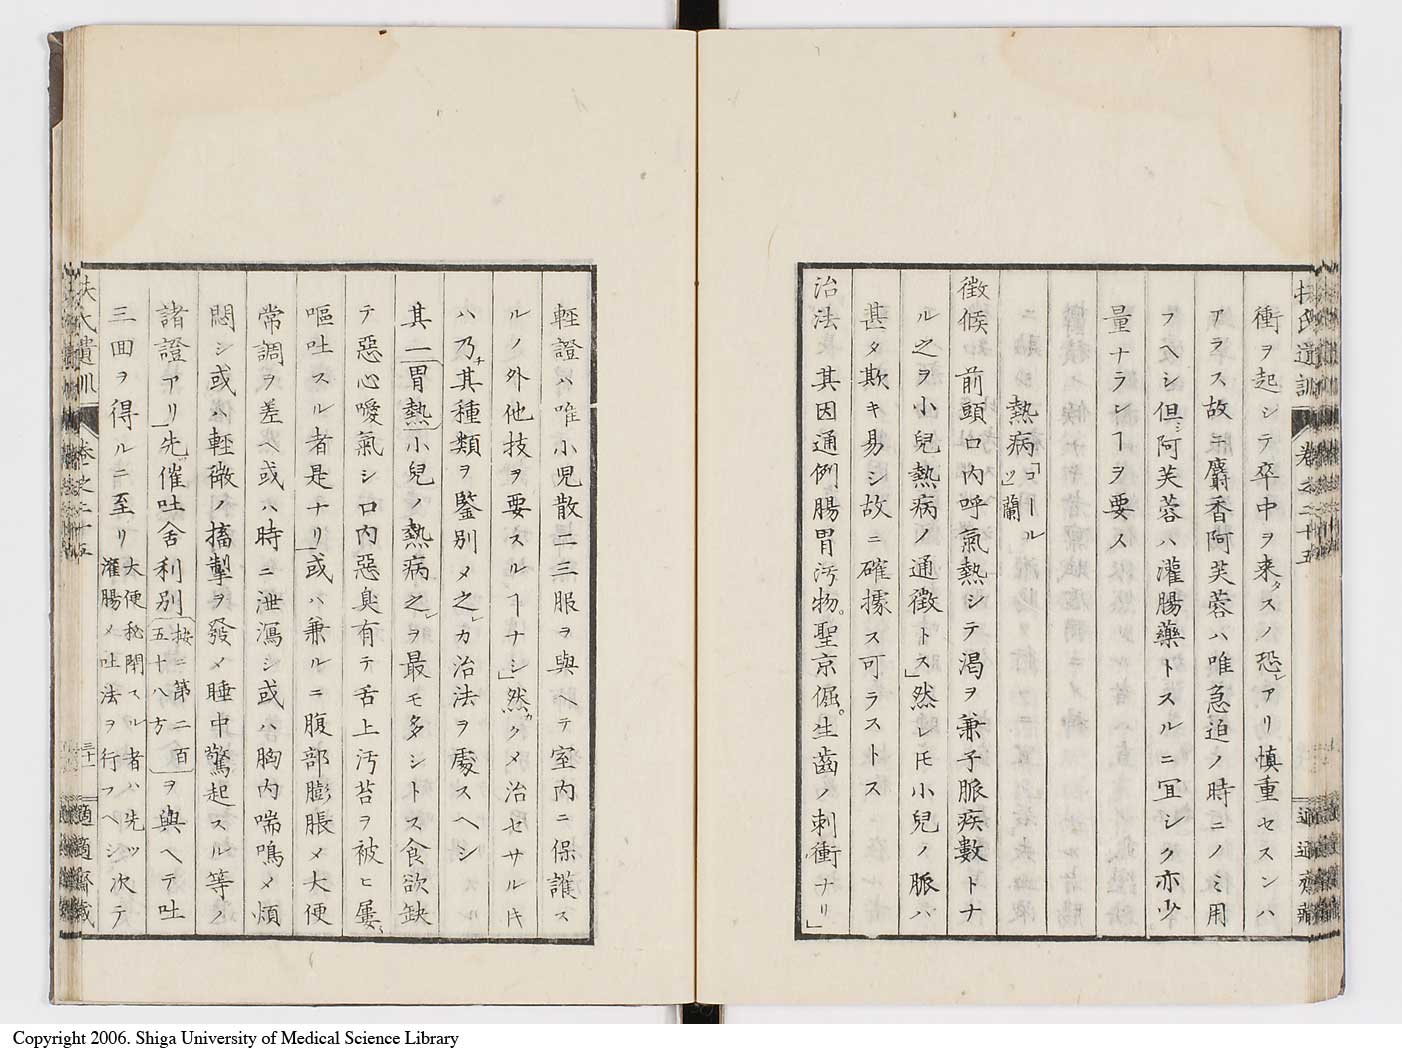 扶氏遺訓 卷之二十五 適適齋藏
衝ヲ起シテ卒中ヲ来タスノ恐レアリ慎重セスンハ
アラス故ニ麝香阿芙蓉ハ唯急迫ノ時ニノミ用
フヘシ但シ阿芙蓉ハ灌腸藥トスルニ宜シク亦少
量ナランヿヲ要ス
熱病「コールツ」蘭
徴候 前頭口内呼氣熱シテ渴ヲ兼子脈疾數トナ
ル之ヲ小兒熱病ノ通徴トス」然レ𪜈小兒ノ脈ハ
甚タ欺キ易シ故ニ確據ス可ラストス
治法 其因通例腸胃汚物。聖京倔。生齒ノ刺衝ナリ」
輕證ハ唯小児散二三服ヲ與ヘテ室内ニ保護ス
ルノ外他技ヲ要スルヿナシ」然カクメ治セサルトキ
ハ乃ナ其種類ヲ鑒別メ之レカ治法ヲ處スヘシ
其一胃熱小兒ノ熱病之レヲ最モ多シトス食欲缺
テ惡心噯氣シ口内惡臭有テ舌上汚苔ヲ被ヒ屢〻
嘔吐スル者是ナリ」或ハ兼ルニ腹部膨脹メ大便
常調ヲ差ヘ或ハ時ニ泄瀉シ或ハ胸内喘鳴メ煩
悶シ或ハ輕微ノ搐掣ヲ發メ睡中驚起スル等ノ
諸證アリ」先ツ催吐舍利別按ニ第二百五十八方ヲ與ヘテ吐
三回ヲ得ルニ至リ大便秘閉スル者ハ先ツ灌腸メ吐法ヲ行フヘシ次テ
扶氏遺訓 卷之二十五 三十一 適適齋藏
Copyright 2006. Shiga University of Medical Science Library